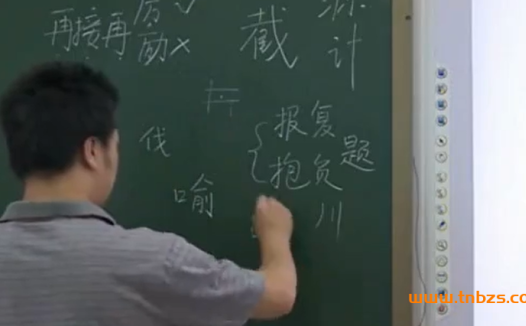 再接再 厉 √
励 ×
截
计
伐
报复
抱负
题
喻
川
www.tnbzs.co